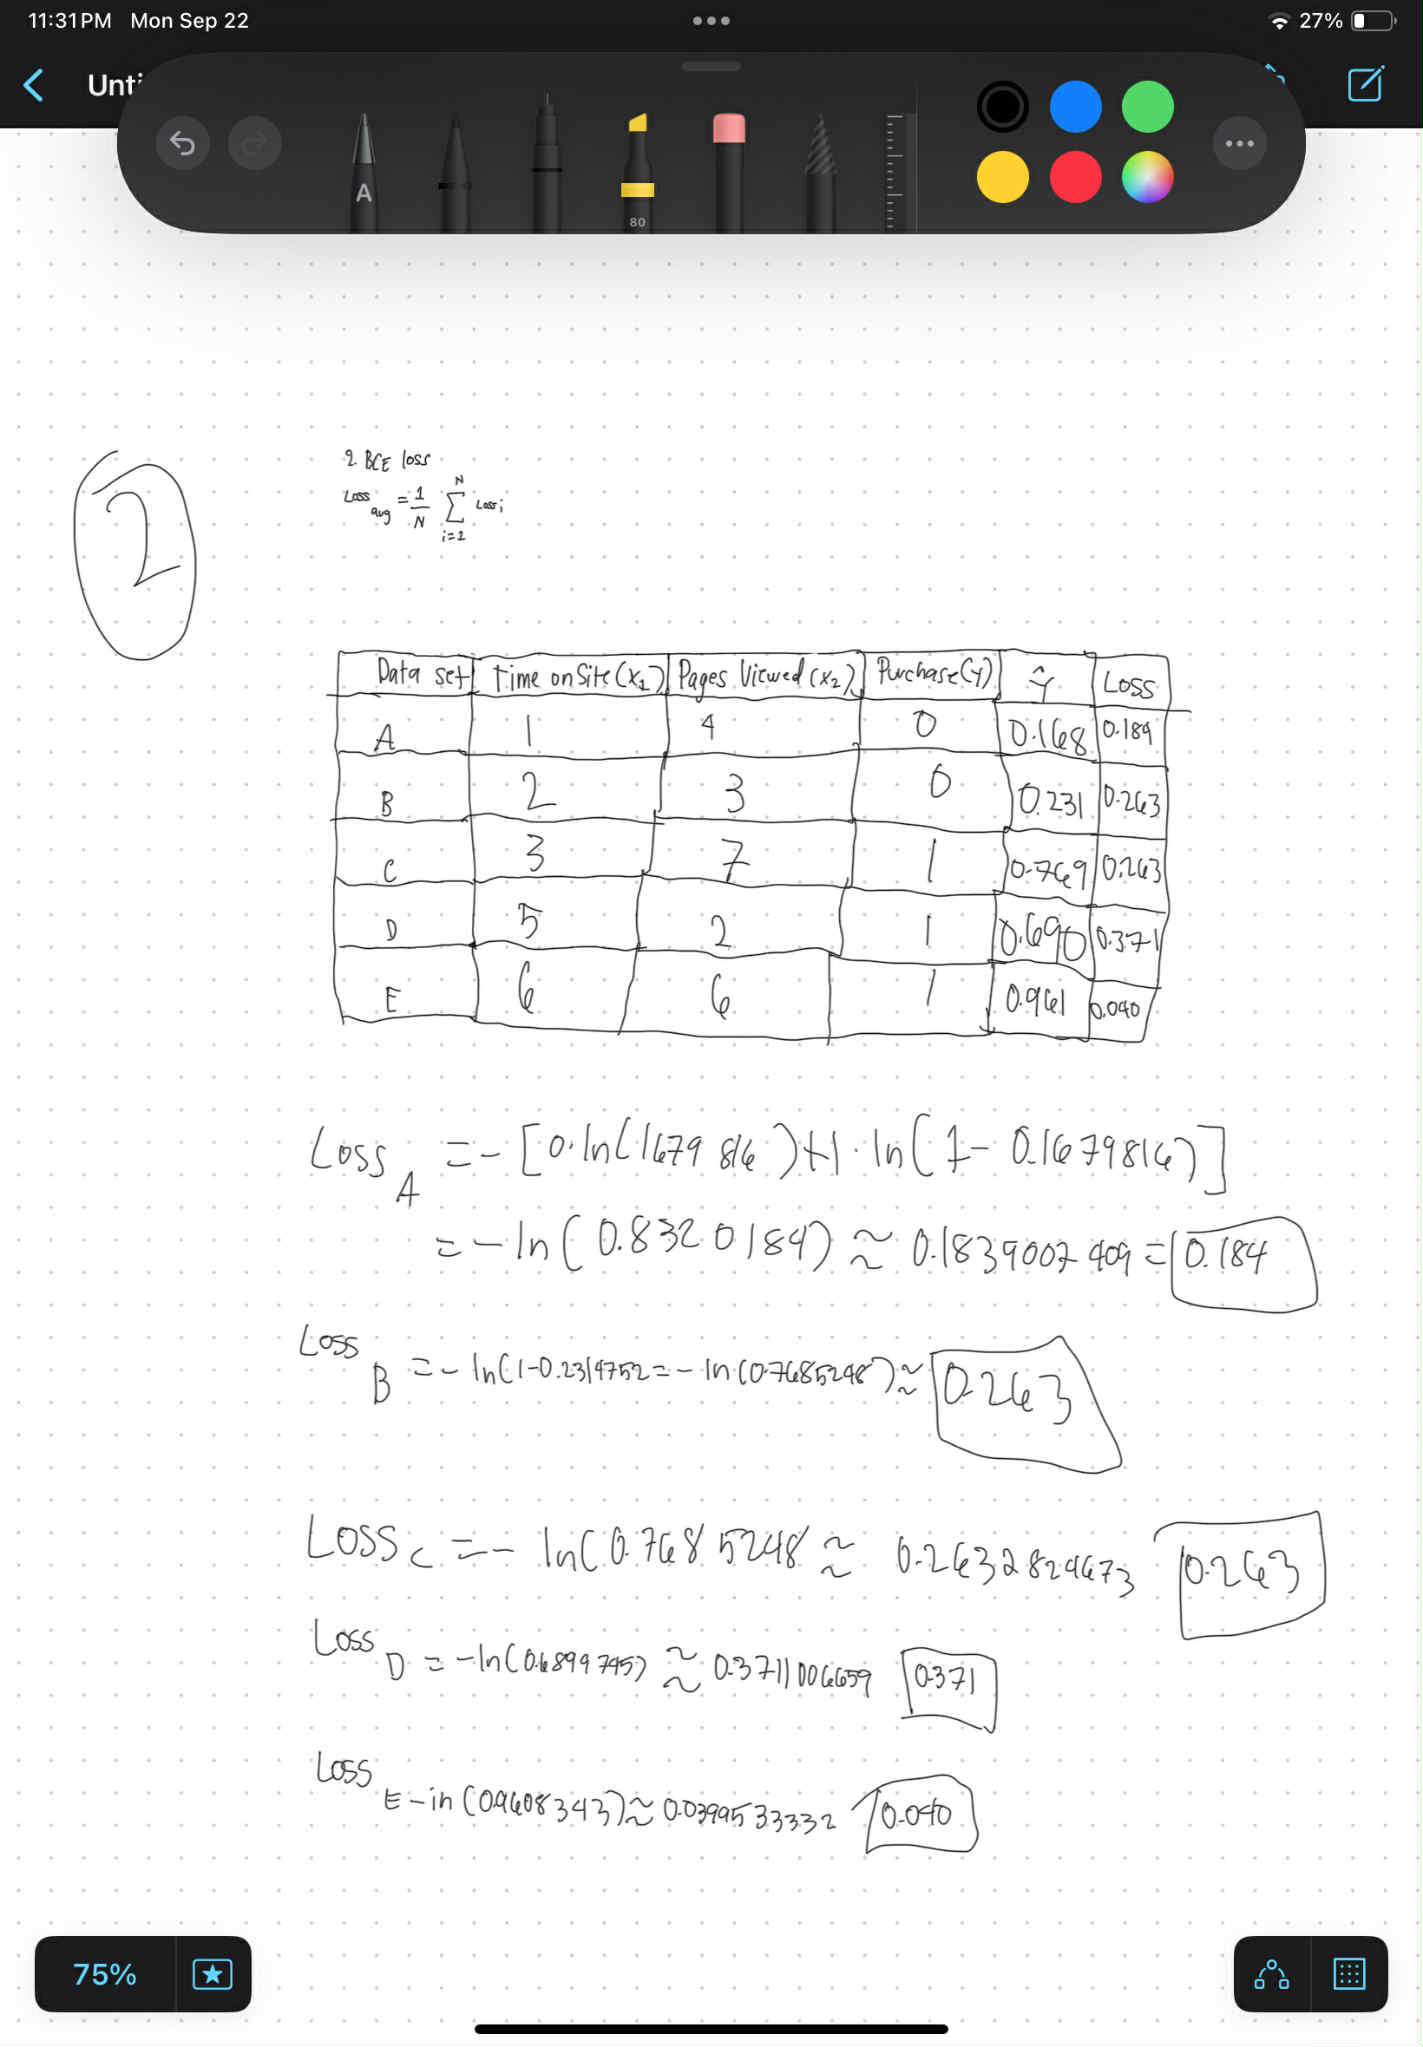 11:31 PM Mon Sep 22
27%
Unti
A
80
2
2. BCE loss
Loss avg = 1/N N Σ i=1 Loss i
Data set Time on Site (x1) Pages Viewed (x2) Purchase (y) Ŷ Loss
A 1 4 0 0.168 0.184
B 2 3 0 0.231 0.263
C 3 7 1 0.769 0.263
D 5 2 1 0.690 0.371
E 6 6 1 0.961 0.040
Loss A = - [0·ln(1679816)+1·ln(1-0.1679816)]
= -ln(0.8320184) ≈ 0.1839007409 = 0.184
Loss B = - ln(1-0.2314752 = - ln(0.7685248) ≈ 0.263
Loss C = - ln(0.7685248 ≈ 0.2632824673 0.263
Loss D = -ln(0.6899745) ≈ 0.3711006659 0.371
Loss E - in (0.9608343) ≈ 0.0399533332 0.040
75%